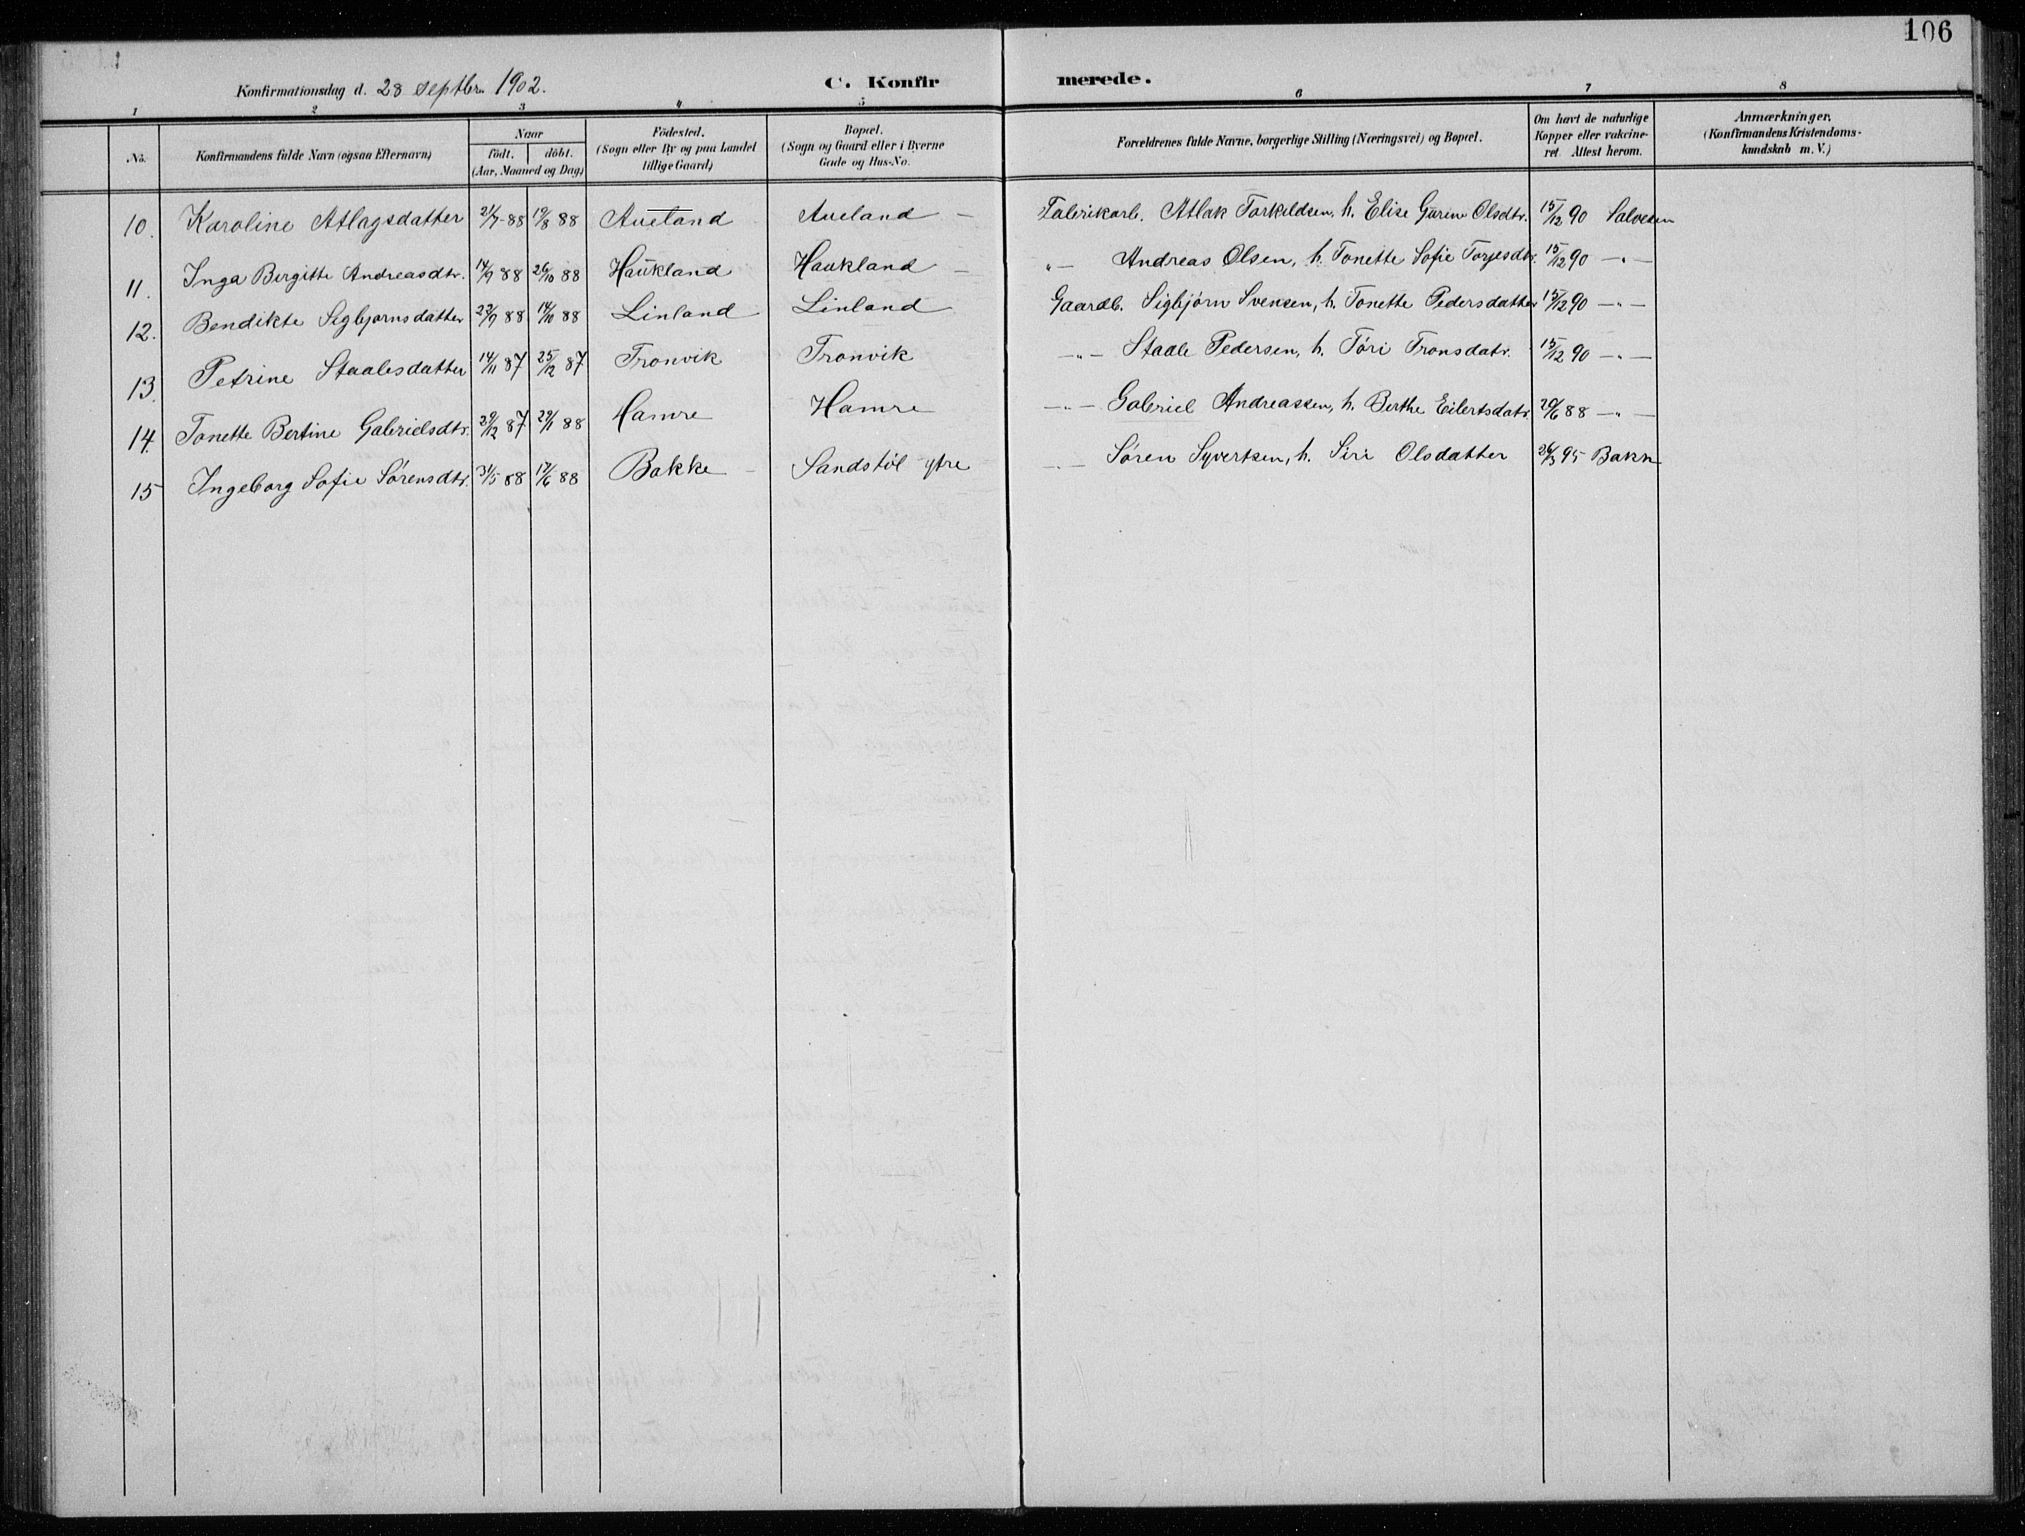 106
Konfirmationsdag d. 28 septbr. 1902. C. Konfirmerede.
1 2 3 4 5 6 7 8
No. Konfirmandens fulde Navn (ogsaa Efternavn) Naar födt. döbt. (Aar, Maaned og Dag) Födested. (Sogn eller By og paa Landet tillige Gaard) Bopæl. (Sogn og Gaard eller i Byerne Gade og Hus-No. Forældrenes fulde Navne, borgerlige Stilling (Næringsvei) og Bopæl. Om havt de naturlige Kopper eller vakcineret Attest herom. Anmærkninger. (Konfirmandens Kristendomskundskab m. V.)
10. Karoline Atlagsdatter 21/7 88 19/8 88 Aueland Aueland – Fabrikarb. Atlak Torkildsen, h. Elise Gurine Olsdtr. 15/12 90 Salvesen
11. Inga Birgitte Andreasdtr. 14/9 88 26/10 88 Haukland Haukland – „ – Andreas Olsen, h. Tonette Sofie Torjesdtr. 15/12 90 – „ –
12. Bendikte Sigbjørnsdatter 23/9 88 14/10 88 Linland Linland Gaardb. Sigbjørn Svensen, h. Tonette Pedersdatter 15/12 90 – „ –
13. Petrine Staalesdatter 14/11 87 25/12 87 Tronvik Tronvik – „ – Staale Pedersen, h. Töri Tronsdatr. 15/12 90 – „ –
14. Tonette Bertine Gabrielsdtr. 29/12 87 29/1 88 Hamre Hamre – „ – Gabriel Andreassen, h. Berthe Eilertsdatr. 20/6 88 – „ –
15 Ingeborg Sofie Sørensdtr. 31/5 88 17/6 88 Bakke – Sandstöl ytre – „ – Søren Syvertsen, h. Siri Olsdatter 26/3 95 Bakk